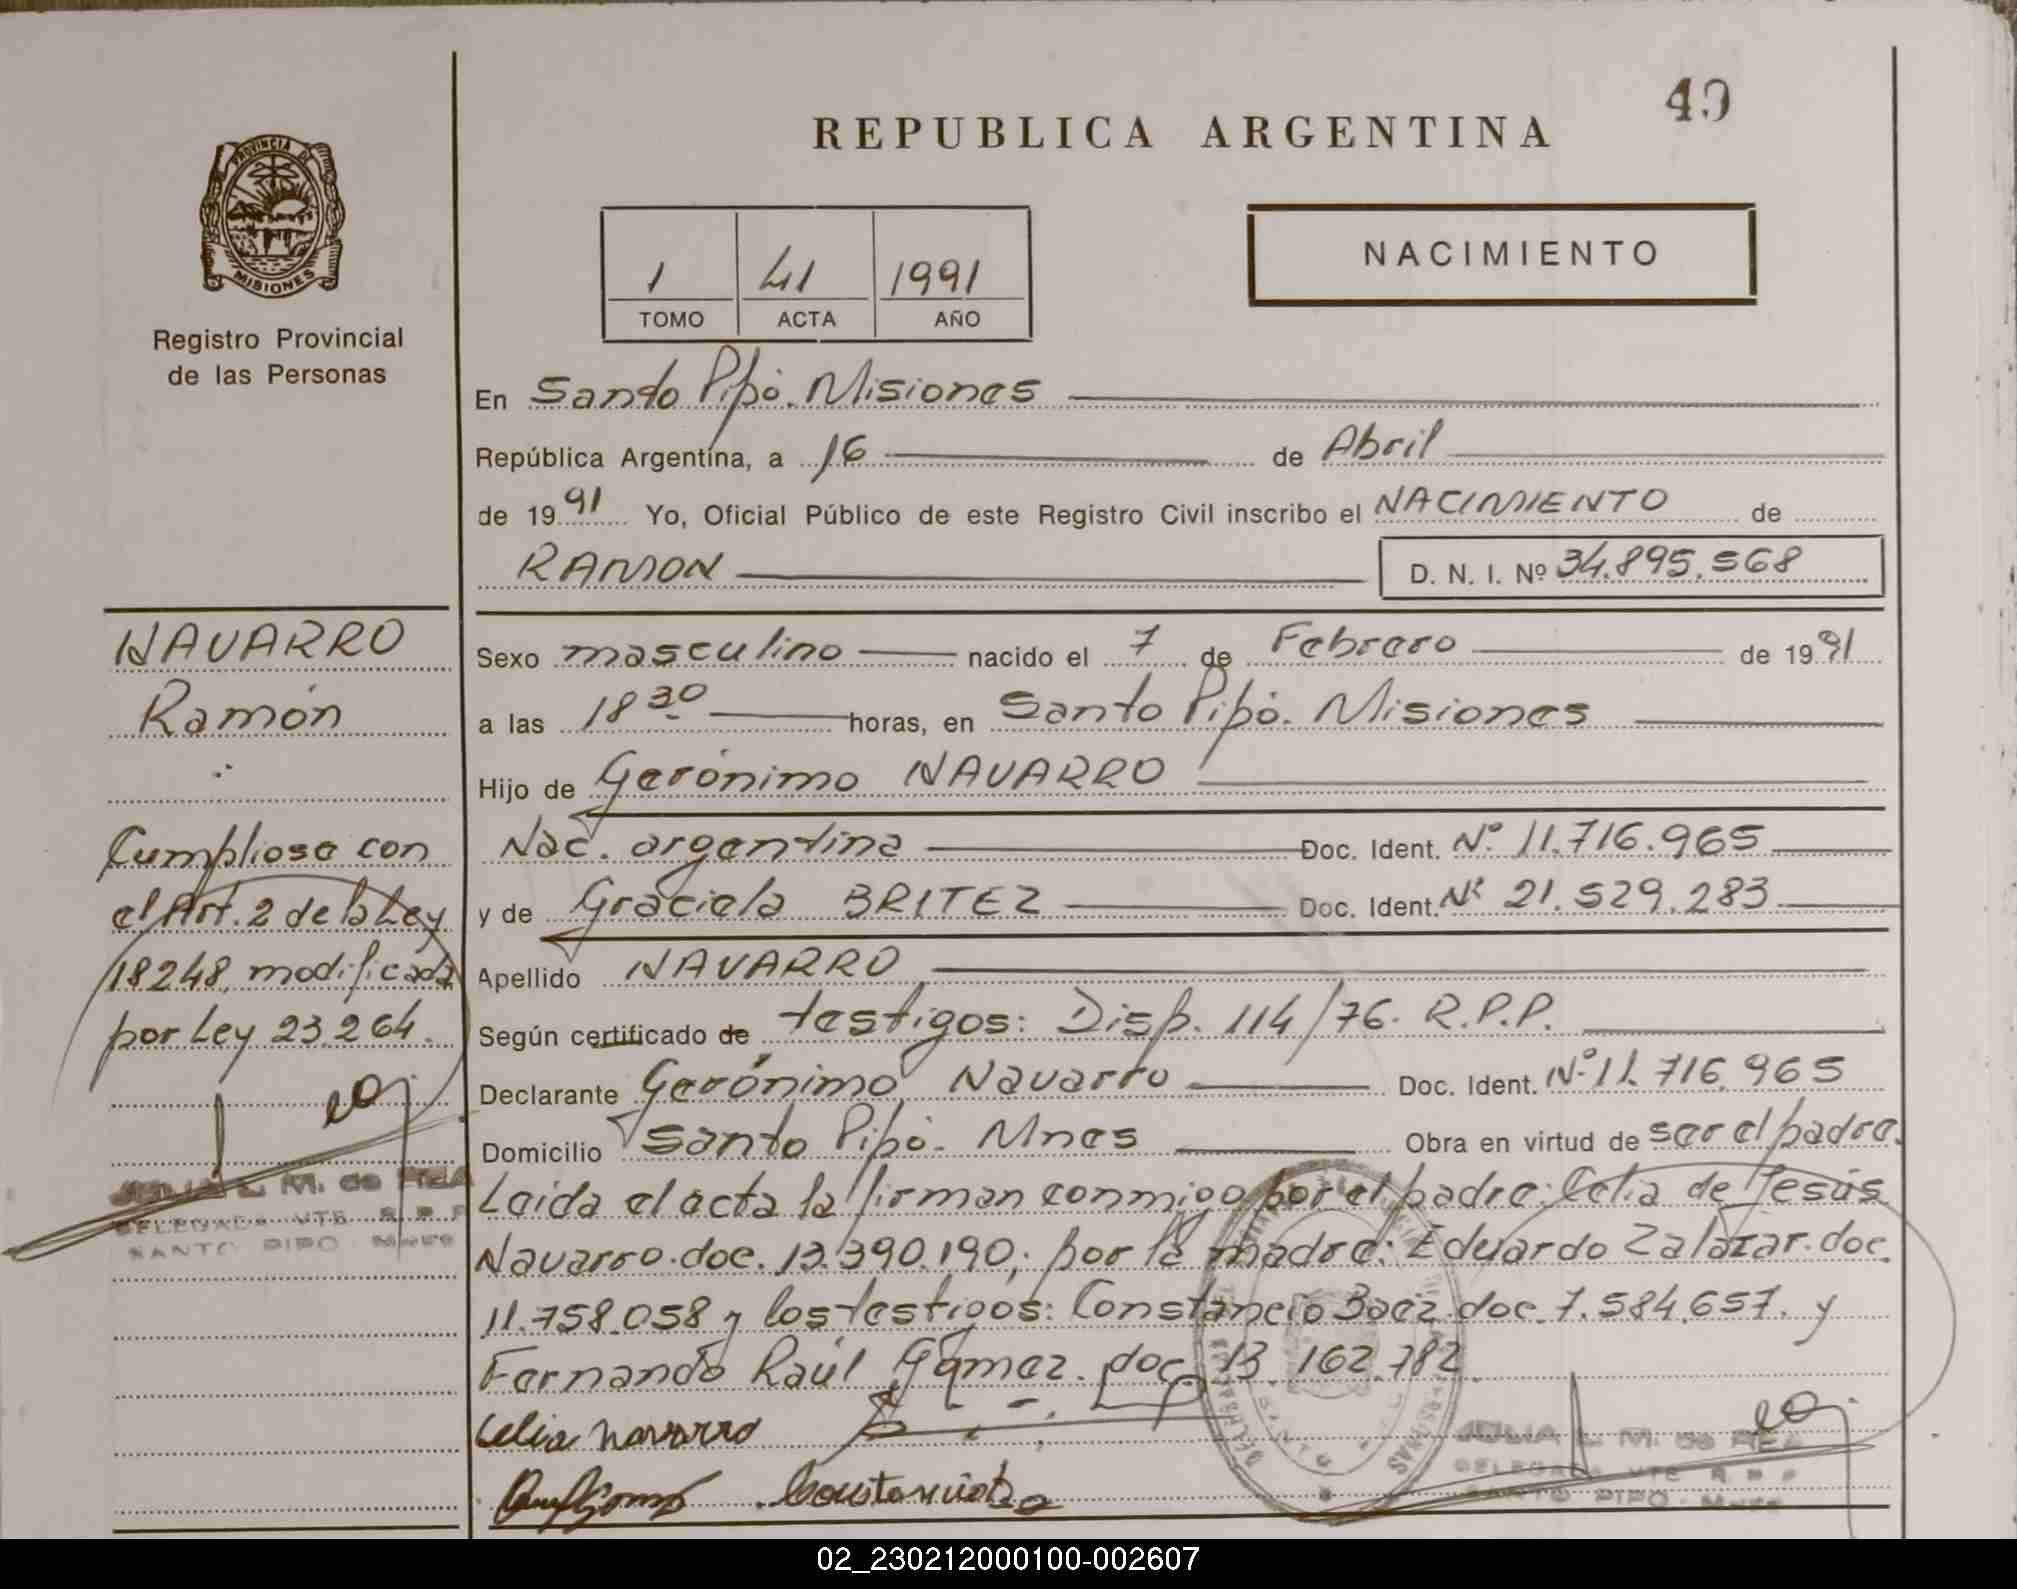 40
REPUBLICA ARGENTINA
PROVINCIA DE
MISIONES
Registro Provincial
de las Personas
1 41 1991
TOMO ACTA AÑO
NACIMIENTO
En Santo Pipó. Misiones
República Argentina, a 16 de Abril
de 1991 Yo, Oficial Público de este Registro Civil inscribo el NACIMIENTO de
RAMON D. N. I. Nº 34.895.568
NAVARRO
Ramón
Cumpliose con
el Art. 2 de la Ley
18248, modificada
por Ley 23.264.
JULIA L. M. de REA
DELEGADA VTE R. P. P
SANTO PIPO - Mnes
Sexo masculino nacido el 7 de Febrero de 1991
a las 18 30 horas, en Santo Pipó. Misiones
Hijo de Gerónimo NAVARRO
Nac. argentina Doc. Ident. Nº 11.716.965
y de Graciela BRITEZ Doc. Ident. Nº 21.529.283
Apellido NAVARRO
Según certificado de testigos: Disp. 114/76. R.P.P.
Declarante Gerónimo Navarro Doc. Ident. Nº 11.716.965
Domicilio Santo Pipó - Mnes Obra en virtud de ser el padre.
Leida el acta la firman conmigo por el padre: Celia de Jesús
Navarro. doc. 13.390.190; por la madre: Eduardo Zalazar. doc.
11.758.058 y los testigos: Constancio Baez. doc. 7.584.657. y
Fernando Raúl Gómez. doc. 13.162.782
Celia Navarro
JULIA L. M. de REA
DELEGADA VTE R. P. P
SANTO PIPO - Mnes
02_230212000100-002607